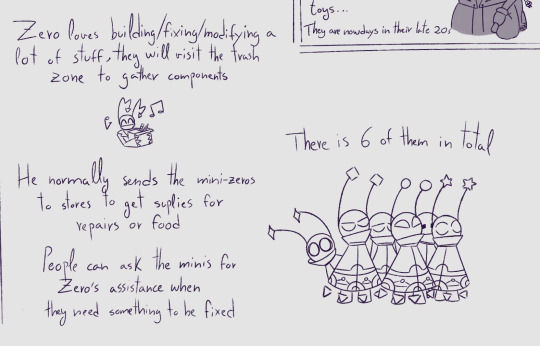 Zero loves building/fixing/modifying a
lot of stuff, they will visit the trash
zone to gather components
He normally sends the mini-zeros
to stores to get suplies for
repairs or food
People can ask the minis for
Zero's assistance when
they need something to be fixed
toys...
They are nowadays in their late 20s
There is 6 of them in total